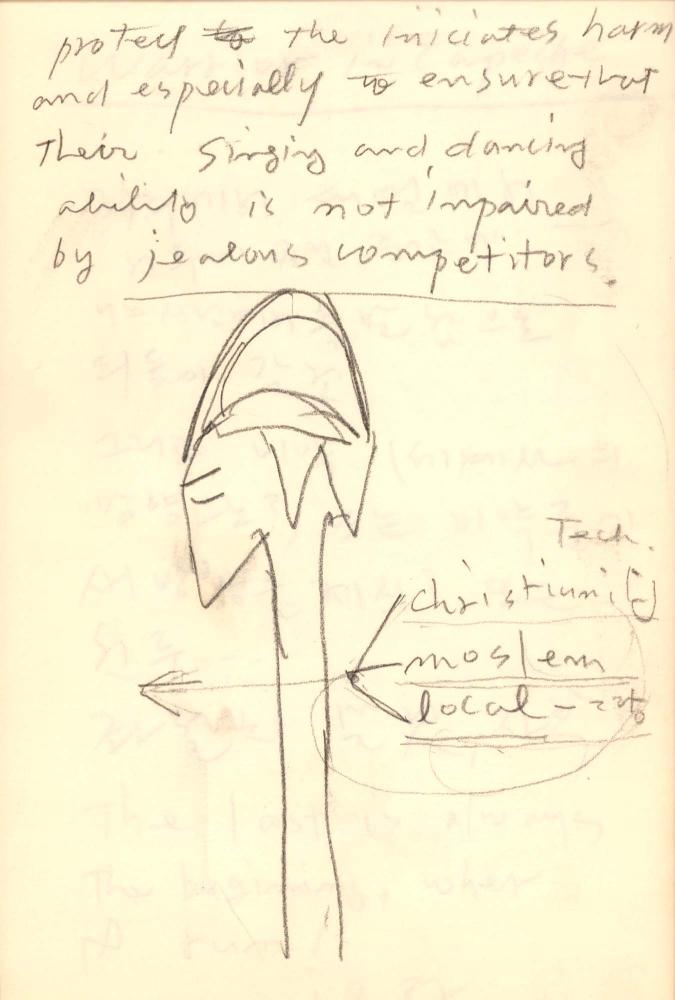 protect to the iniciates harm
and especially to ensure that
their singing and dancing
ability is not impaired
by jealous competitors.
Tech.
christianity
moslem
local -